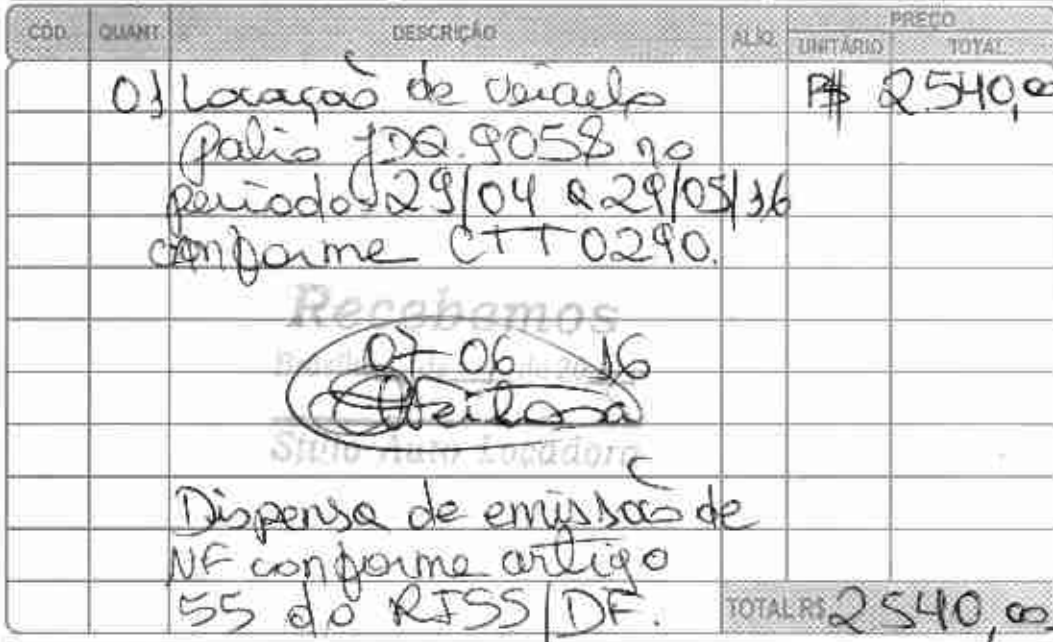 CÓD. QUANT. DESCRIÇÃO ALÍQ. PREÇO
UNITÁRIO TOTAL
01 Locação de veiculo R$ 2540,00
Palio JDQ.9058 no
periodo 29/04 a 29/05/16
conforme CTT 0290.
Recebemos
07 06 16
Stilo Auto Locadora
Dispensa de emissão de
NF conforme artigo
55 do RISS/DF.
TOTAL R$ 2540,00